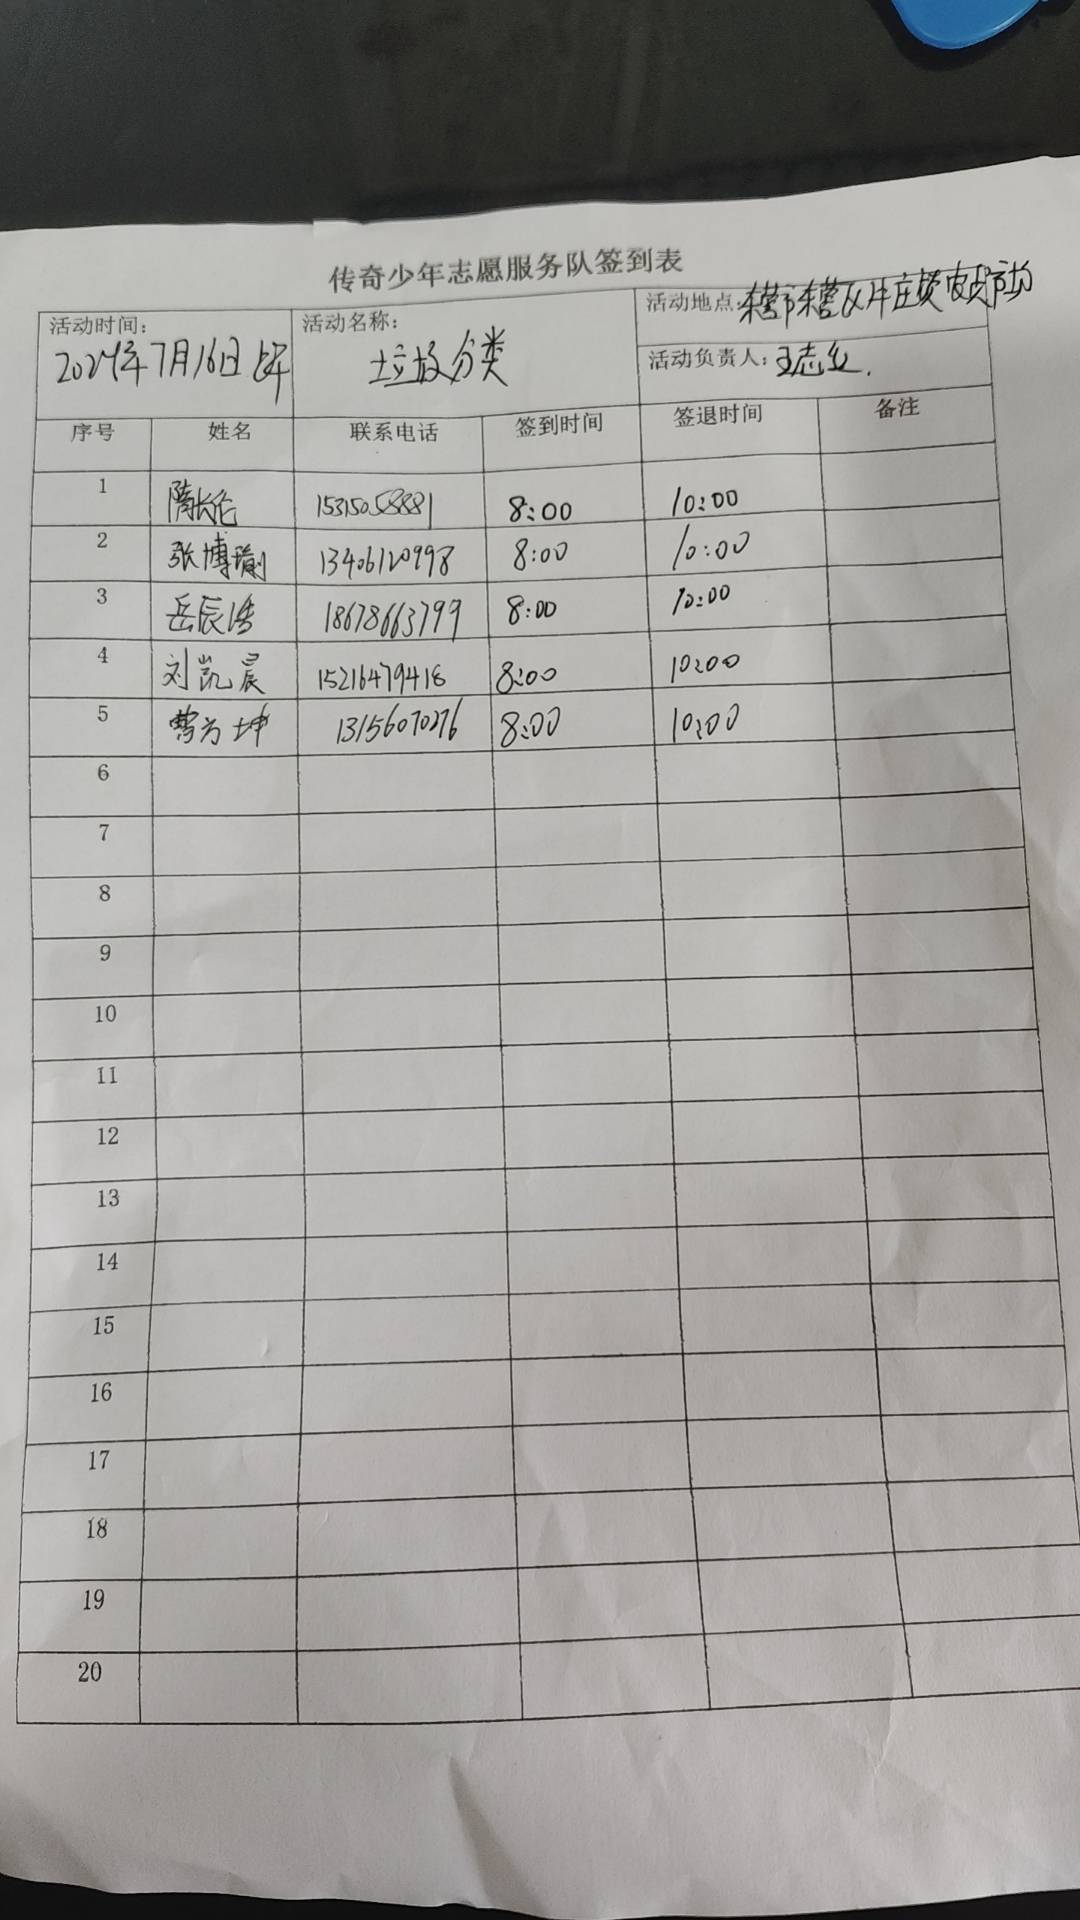 传奇少年志愿服务队签到表
活动时间: 2024年7月16日上午
活动名称: 垃圾分类
活动地点: 东营市东营区牛庄镇 市场
活动负责人: 王志
序号 姓名 联系电话 签到时间 签退时间 备注
1 隋 伦 15315058881 8:00 10:00
2 张博瀚 13406120998 8:00 10:00
3 岳辰浩 18678663799 8:00 10:00
4 刘凯晨 15216479418 8:00 10:00
5 坤 13156070276 8:00 10:00
6
7
8
9
10
11
12
13
14
15
16
17
18
19
20